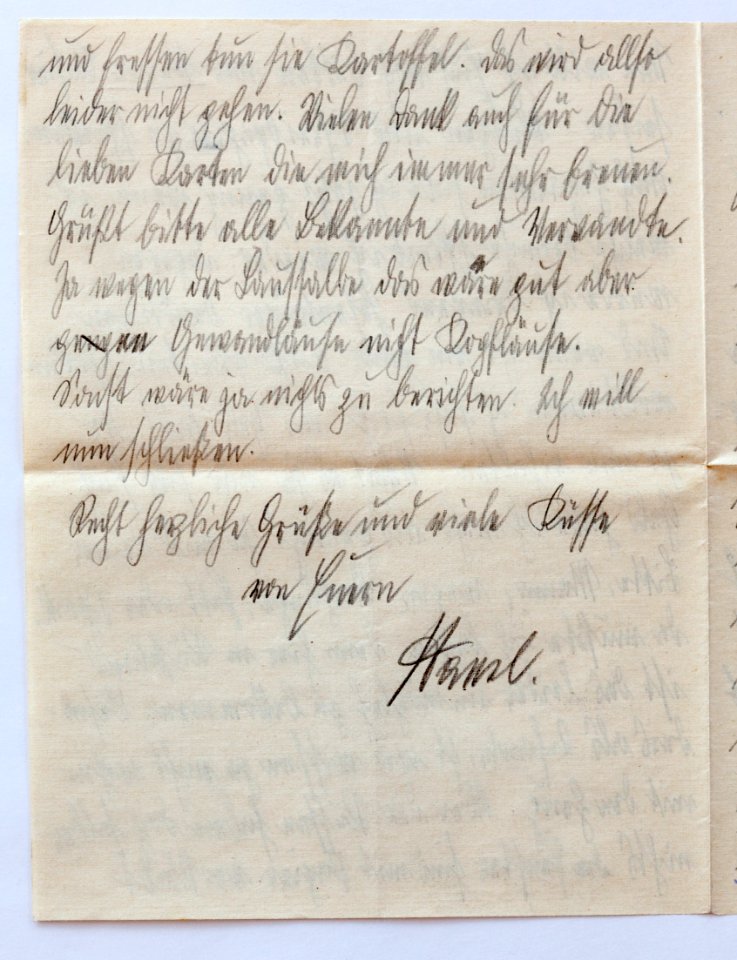 und fressen tun sie Kartoffel. Das wird allso
leider nicht gehen. Vielen Dank auch für die
lieben Karten die mich immer sehr freuen.
Grüßt bitte alle Bekannte und Verwandte.
Ja wegen der Laussalbe das wäre gut aber
gegen Gewandläuse nicht Kopfläuse.
Sonst wäre ja nichts zu berichten. Ich will
nun schließen.
Recht herzliche Grüße und viele Küsse
von Euern